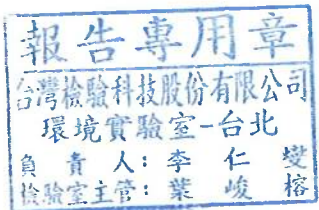 報告專用章
台灣檢驗科技股份有限公司
環境實驗室-台北
負責人:李仁燮
檢驗室主管:葉峻榕